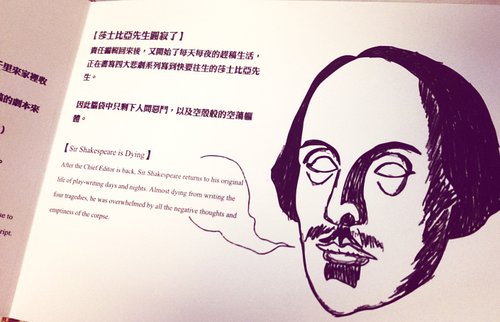 千里來家裡收
稿的劇本來
ne to
ript.
【莎士比亞先生圓寂了】
責任編輯回來後，又開始了每天每夜的趕稿生活，
正在書寫四大悲劇系列寫到快要往生的莎士比亞先
生。
因此腦袋中只剩下人間惡鬥，以及空殼般的空蕩軀
體。
【Sir Shakespeare is Dying】
After the Chief Editor is back, Sir Shakespeare returns to his original
life of play-writing days and nights. Almost dying from writing the
four tragedies, he was overwhelmed by all the negative thoughts and
emptiness of the corpse.